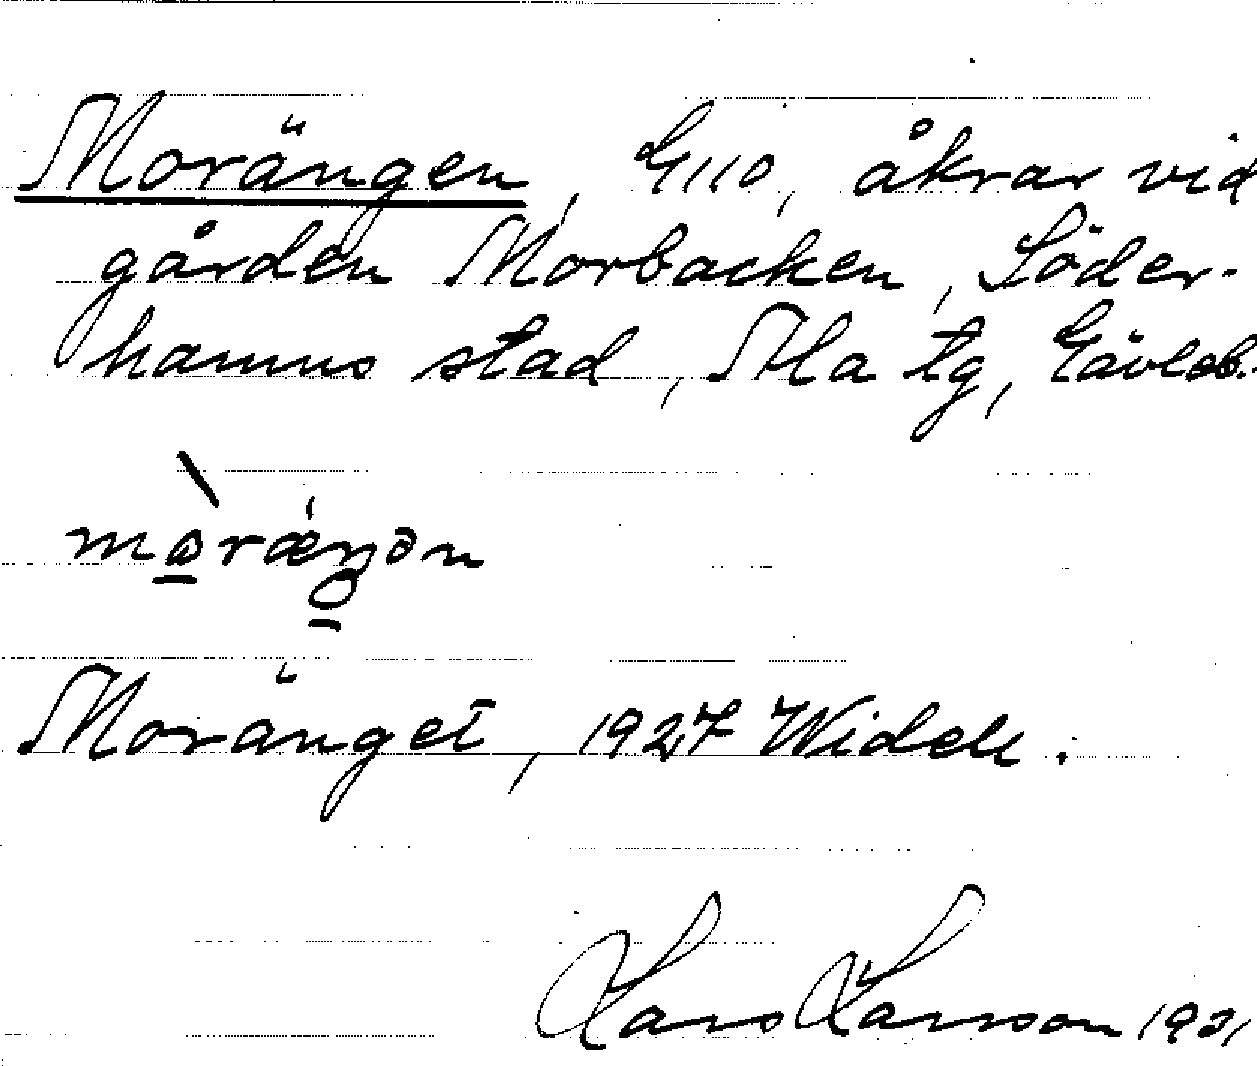 Morängen, G110, åkrar vid
gården Morbacken, Söder-
hamns stad, Ala tg, Gävleb.
mòrǽŋən
Moränget, 1927 Widell.
Lars Larsson 1931